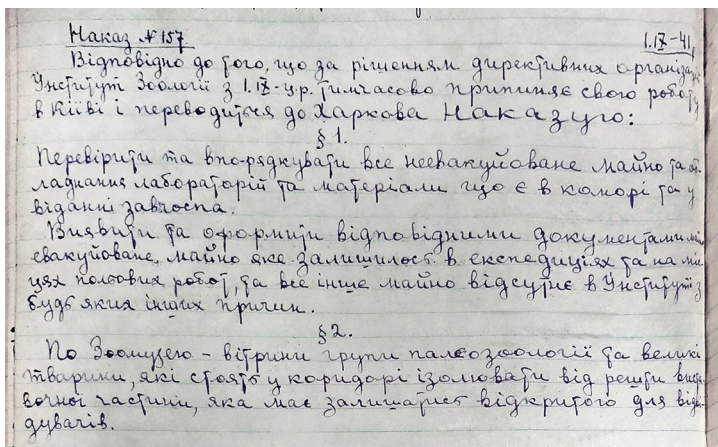 Наказ № 157 1.IX-41
Відповідно до того, що за рішенням директивних організацій
Інститут Зоології з 1.IX-ц.р. тимчасово припиняє свою роботу
в Київі і переводиться до Харкова Наказую:
§ 1.
Перевірити та впорядкувати все неевакуйоване майно та об-
ладнання лабораторій та матеріали що є в коморі та у
віданні завгоспа.
Виявити та оформити відповідними документами не
евакуйоване, майно яке залишилось в експедиціях та на міс-
цях польових робот, та все інше майно відсутнє в Інституті з
будь яких інших причин.
§ 2.
По Зоомузею - вітрини групи палеозоології та великі
тварини, які стоять у коридорі ізолювати від решти виста-
вочної частини, яка має залишатись відкритого для відві-
дувачів.